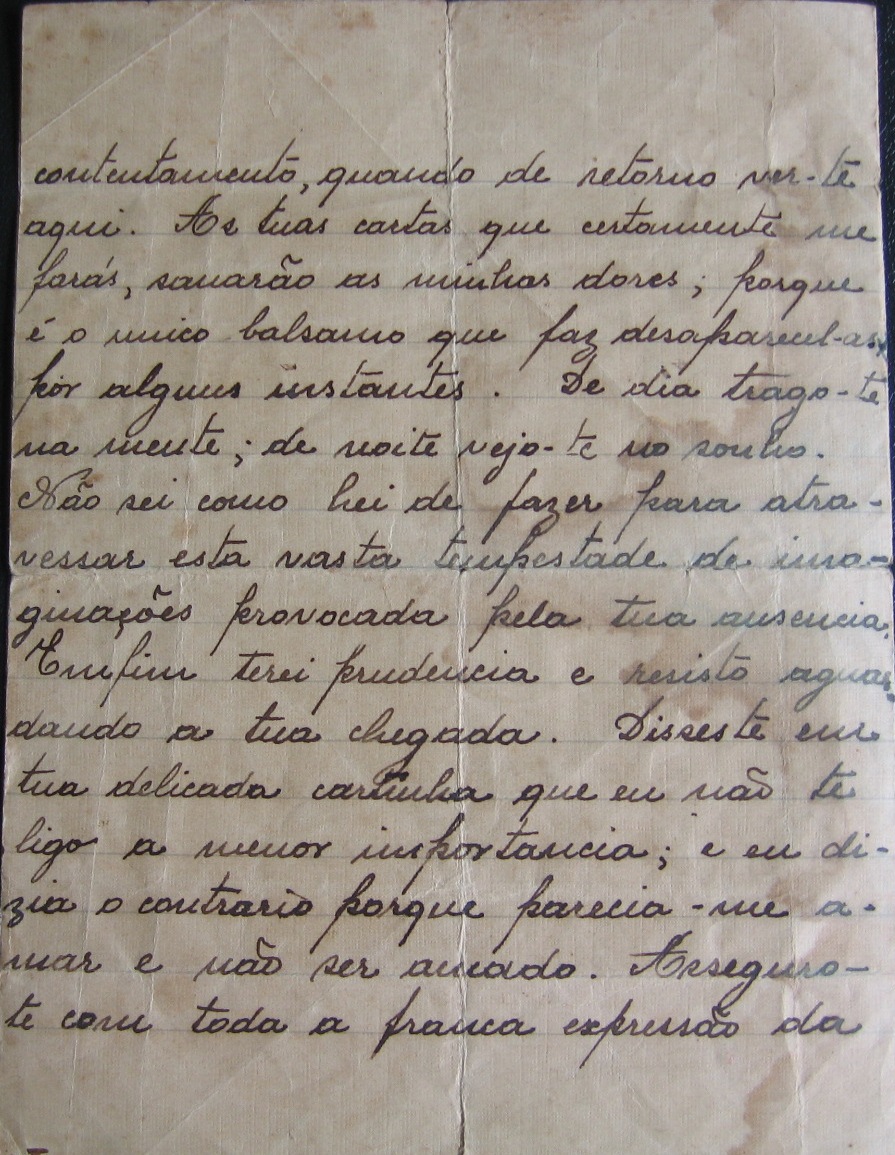 contentamento, quando de retorno ver-te
aqui. As tuas cartas que certamente me
farás, sanarão as minhas dores; porque
é o unico balsamo que faz desaparecel-as,
por alguns instantes. De dia trago-te
na mente; de noite vejo-te no sonho.
Não sei como hei de fazer para atra-
vessar esta vasta tempestade de ima-
ginações provocada pela tua ausencia.
Emfim terei prudencia e resisto aguar-
dando a tua chegada. Disseste em
tua delicada cartinha que eu não te
ligo a menor importancia; e eu di-
zia o contrario porque parecia-me a-
mar e não ser amado. Asseguro-
te com toda a franca expressão da